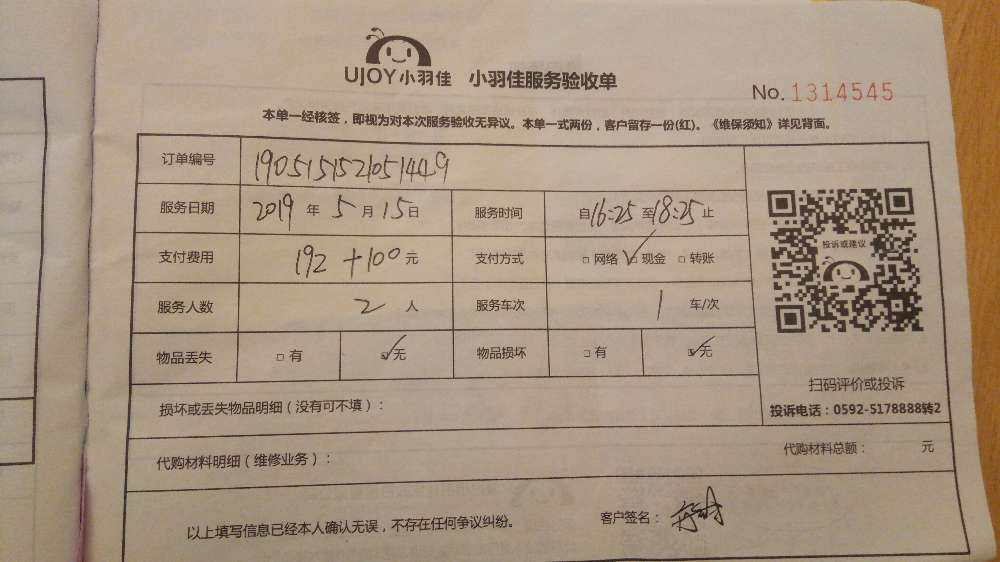 UJOY小羽佳 小羽佳服务验收单
No.1314545
本单一经核签，即视为对本次服务验收无异议。本单一式两份，客户留存一份(红)。《维保须知》详见背面。
订单编号 1905151521051449
服务日期 2019年5月15日 服务时间 自16:25至18:25止
投诉或建议
支付费用 192+100元 支付方式 □网络 ☑现金 □转账
服务人数 2人 服务车次 1车/次
物品丢失 □有 ☑无 物品损坏 □有 ☑无
扫码评价或投诉
投诉电话：0592-5178888转2
损坏或丢失物品明细（没有可不填）：
代购材料明细（维修业务）： 代购材料总额： 元
以上填写信息已经本人确认无误，不存在任何争议纠纷。 客户签名：